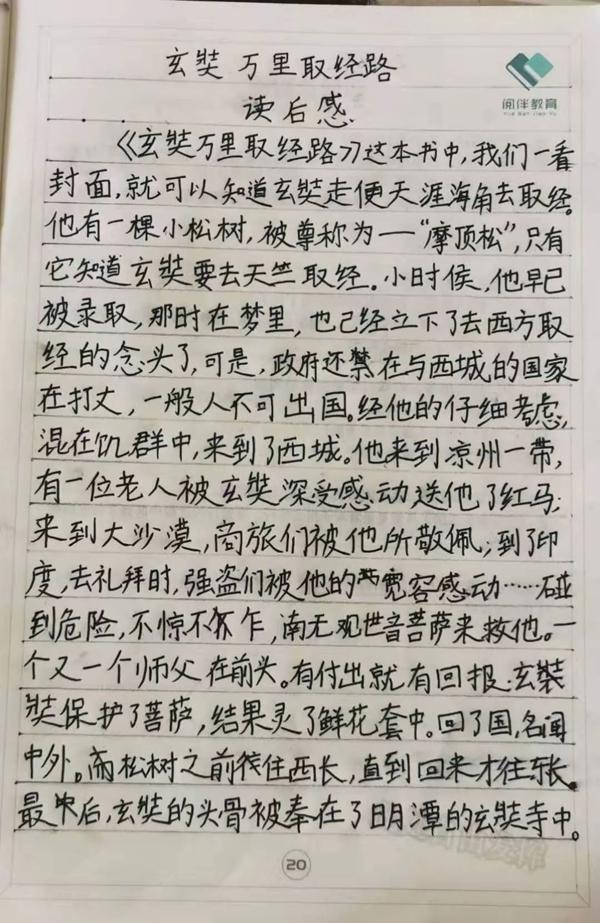 玄奘 万里取经路
阅伴教育
Yue Ban Jiao Yu
读后感
《玄奘万里取经路》这本书中,我们一看
封面,就可以知道玄奘走便天涯海角去取经。
他有一棵小松树,被尊称为一“摩顶松”,只有
它知道玄奘要去天竺取经。小时侯,他早已
被录取,那时在梦里,也己经立下了去西方取
经的念头了,可是,政府还禁在与西城的国家
在打丈,一般人不可出国。经他的仔细考虑,
混在饥群中,来到了西城。他来到凉州一带,
有一位老人被玄奘深受感动送他了红马;
来到大沙漠,商旅们被他所敬佩;到了印
度,去礼拜时,强盗们被他的宽容感动……碰
到危险,不惊不乍,南无观世音菩萨来救他。一
个又一个师父在前头。有付出就有回报.玄装
奘保护了菩萨,结果灵了鲜花套中。回了国,名闻
中外。而松树之前往西长,直到回来才往东长.
最后,玄奘的头骨被奉在了日月潭的玄奘寺中。
20